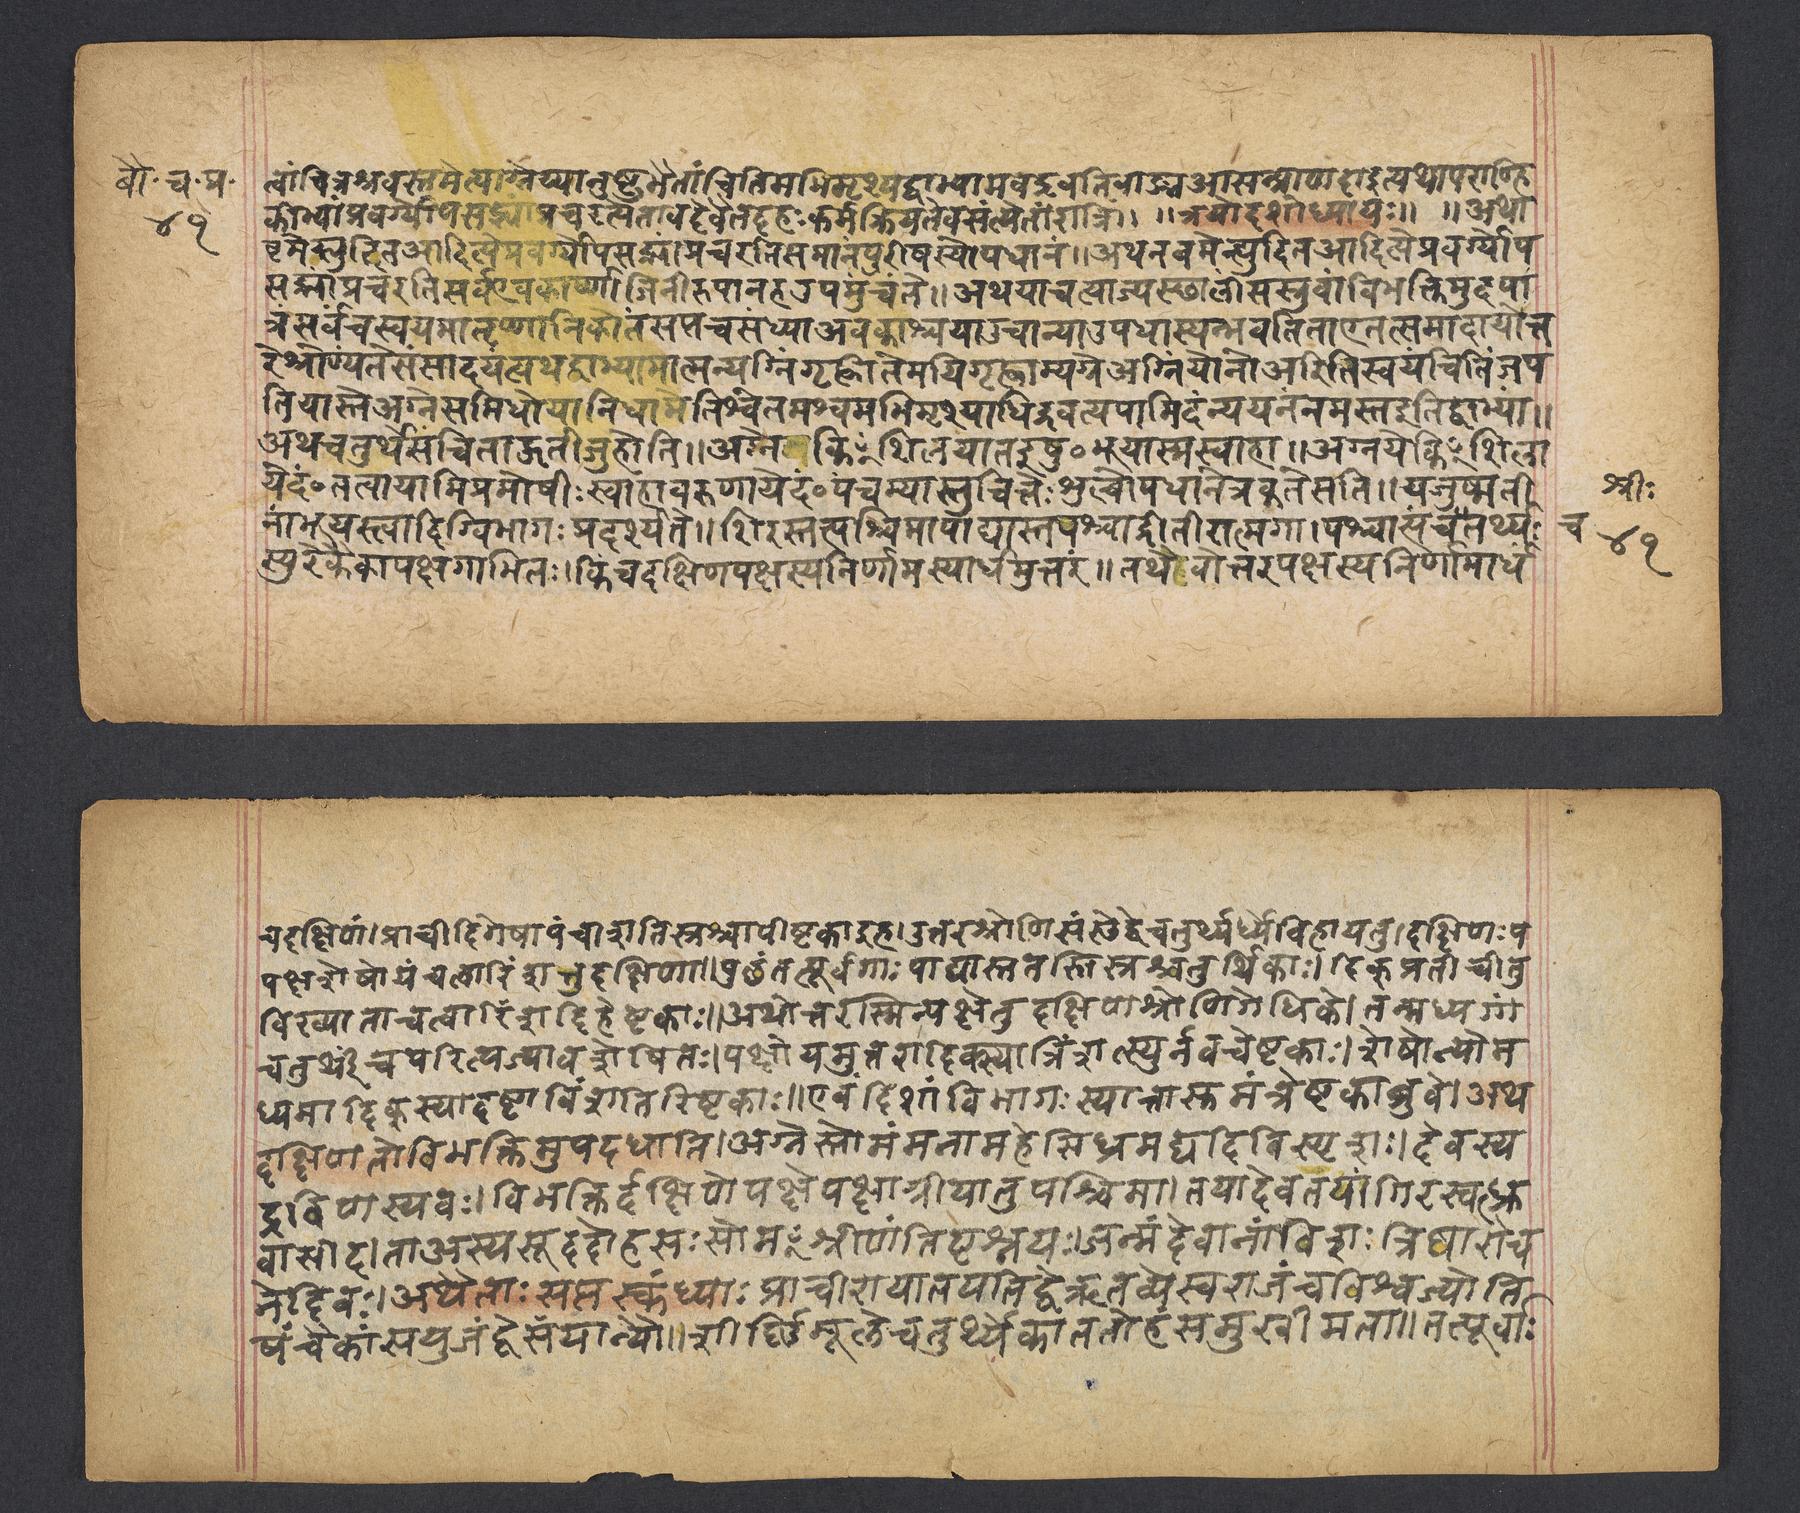 बौ. च. प्र.
४१
त्वां चित्रश्रवस्तमेत्याग्नेय्यानुष्टुभैतां चितिमभिमृश्य द्वाभ्यामवद्रवति वाङ्म आसन्प्राणदाइत्यथापराण्हि
काभ्यां प्रवर्ग्योपसद्भ्यां प्रचरत्येतावदेवैतदहःकर्म क्रियते वसंत्येतां रात्रिं।। ।।त्रयोदशोध्यायः।। ।।अथा
ष्टमेह्नुदितआदित्येप्रवर्ग्योपसद्भ्यां प्रचरतिसमानंपुरीषस्योपधानं।।अथनवमेन्ह्युदितआदित्येप्रवर्ग्योप
सद्भ्यांप्रचरतिसर्वएवकार्ष्णाजिनीरुपानहउपमुंचते।।अथयाचत्याज्यस्थालीं सस्रुवां विभक्तिमुदपा
त्रंसर्वंचस्वयमातृण्णानिकोतंसप्तचसंध्याअवकाश्चयाउचान्याउपधास्यन्भवतिताएतत्समादायोत्त
रेश्रोण्यंतेसंसादयंत्यथद्वाभ्यामात्मन्यग्निंगृह्णीतेमयिगृह्णाम्यग्रेअग्निंयोनोअग्निरितिस्वयंचितिंजप
तियास्तेअग्नेसमिधोयानिधामेतिश्वेतमश्वमभिमृश्याधिद्रवत्यपामिदंन्ययनंनमस्तइतिद्वाभ्यां।।
अथचतुर्थंसंचिताहुतीर्जुहोति।।अग्ने किꣳशिलयातइषु०भूयास्मस्वाहा।।अग्नयेकिꣳशिला
येदं०तत्वायामिप्रमोषीःस्वाहावरुणायेदं०पंचम्यास्तुचितेःश्रुत्वोपधानंत्रकृतेसति।।यजुष्मती
नांभूयस्त्वादिग्विभागःप्रदर्श्यते।।शिरस्तत्पश्चिमापाद्यास्तपश्चाद्गीतीरात्मगा।पश्चासंचैतर्थ्यः च
स्युरेकैकापक्षगामितः।किंचदक्षिणपक्षस्यनिर्णामस्यार्धमुत्तरं।।तथैवोत्तरपक्षस्यनिर्णामार्धं
श्रीः
४१
चदक्षिणं।प्राचीदिगेषापंचाशतिस्रश्चापीष्टकाइह।उत्तरश्रोणिसंस्थेद्वेचतुर्थ्यर्ध्येविहायतु।दक्षिणःप
पक्षशेषोयंचत्वारिंशत्तुदक्षिणा।।पुछंतत्पूर्वगाःपाद्यास्ततस्तिस्रश्चतुर्थिकाः।दिक्प्रतीचीतु
विख्याताचत्वारिंशदिहेष्टकाः।।अथोत्तरस्मिन्पक्षेतुदक्षिणाश्रोणिगेधिके।तन्मध्यगां
चतुर्थींचपरित्यज्यावशेषितः।पक्षोयमुत्तरादिक्स्यात्रिंशत्स्युर्नवचेष्टकाः।शेषोन्योम
ध्यमादिक्स्यादष्टाविंशतिरिष्टकाः।।एवंदिशांविभागःस्यात्तास्तमंत्रेष्टकाब्रुवे।अथ
दक्षिणतोविभक्तिमुपदधाति।अग्नेस्तोमंमनामहेसिध्रमद्यदिविस्पृशः।देवस्य
द्रविणस्यवः।विभक्तिर्दक्षिणेपक्षेपक्षाग्रीयातुपश्चिमा।तयादेवतयांगिरस्वद्ध्रु
वासीद।ताअस्यसूददोहसःसोमꣳश्रीणंतिपृश्नयः।जन्मंदेवानांविशःत्रिष्वारोच
नेदिवः।अथैताःसप्तस्कंध्याःप्राचीरायातयतिद्वेऋतव्येस्वराजंचविश्वज्योति
षंचैकांसयुजंद्वेसंयान्यौ।।शीर्ष्णिमूलेचतुर्थ्येकाततोहंसमुखीमता।।तत्पूर्वाः